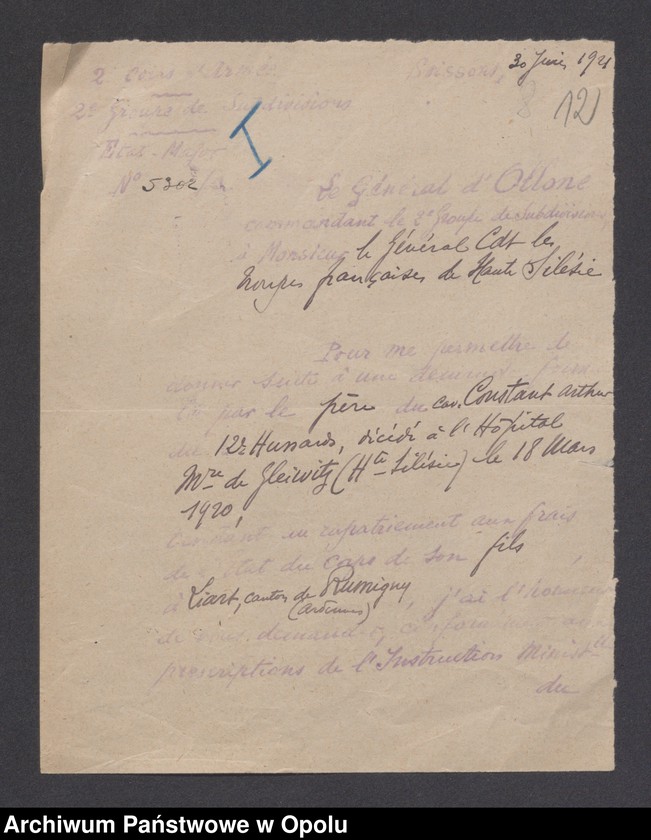 2e Corps d'Armée Soissons, 30 Juin 1921
12
2e Groupe de Subdivisions
Etat-Major
N° 5302
Le Général d'Ollone
commandant le 2e Groupe de subdivisions
à Monsieur le Général Cdt les
troupes françaises de Haute Silésie
Pour me permettre de
donner suite à une demande
par le père du cav. Constant Arthur
du 12e Hussards, décédé à l'Hôpital
Mre de Gleiwitz (Hte Silésie) le 18 Mars
1920,
tendant au rapatriement aux frais
de l'Etat du corps de son fils
à Liart, canton de Rumigny
(Ardennes), j'ai l'honneur
de vous demander, conformément aux
prescriptions de l'Instruction Ministlle
du
Archiwum Państwowe w Opolu